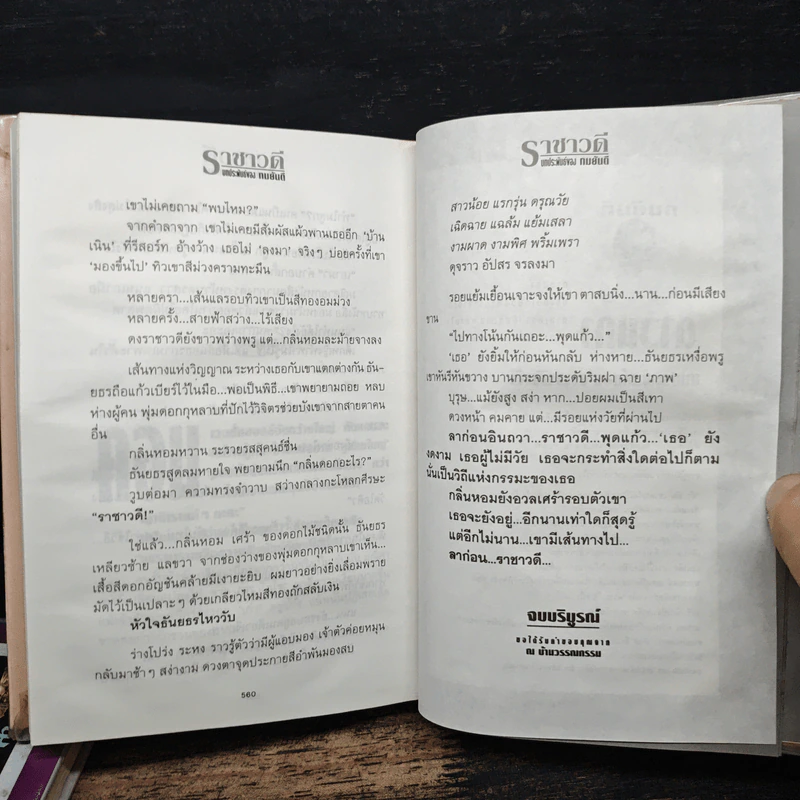 ราชาวดี
บทประพันธ์ของ ทมยันตี
เขาไม่เคยถาม “พบไหม?”
จากคำลาจาก เขาไม่เคยมีสัมผัสแผ้วพานเธออีก ‘บ้าน
เนิน’ ที่รีสอร์ท อ้างว้าง เธอไม่ ‘ลงมา’ จริงๆ บ่อยครั้งที่เขา
‘มองขึ้นไป’ ทิวเขาสีม่วงครามทะมึน
หลายครา...เส้นแลรอบทิวเขาเป็นสีทองอมม่วง
หลายครั้ง...สายฟ้าสว่าง...ไร้เสียง
ดงราชาวดียังขาวพร่างพรู แต่...กลิ่นหอมละม้ายจางลง
เส้นทางแห่งวิญญาณ ระหว่างเธอกับเขาแตกต่างกัน ธัน-
ยธรถือแก้วเบียร์ไว้ในมือ...พอเป็นพิธี...เขาพยายามถอย หลบ
ห่างผู้คน พุ่มดอกกุหลาบที่ปักไว้วิจิตรช่วยบังเขาจากสายตาคน
อื่น
กลิ่นหอมหวาน ระรวยรสสุคนธ์ชื่น
ธันยธรสูดลมหายใจ พยายามนึก “กลิ่นดอกอะไร?”
วูบต่อมา ความทรงจำวาบ สว่างกลางกะโหลกศีรษะ
“ราชาวดี!”
ใช่แล้ว...กลิ่นหอม เศร้า ของดอกไม้ชนิดนั้น ธันยธร
เหลียวซ้าย แลขวา จากช่องว่างของพุ่มดอกกุหลาบเขาเห็น...
เสื้อสีดอกอัญชันคล้ายมีเงาระยิบ ผมยาวอย่างยิ่งเลื่อมพราย
มัดไว้เป็นเปลาะๆ ด้วยเกลียวไหมสีทองถักสลับเงิน
หัวใจธันยธรไหววับ
ร่างโปร่ง ระหง ราวรู้ตัวว่ามีผู้แอบมอง เจ้าตัวค่อยหมุน
กลับมาช้าๆ สง่างาม ดวงตาจุดประกายสีอำพันมองสบ
560
ราชาวดี
บทประพันธ์ของ ทมยันตี
สาวน้อย แรกรุ่น ดรุณวัย
เฉิดฉาย แฉล้ม แย้มเสลา
งามผาด งามพิศ พริ้มเพรา
ดุจราว อัปสร จรลงมา
รอยแย้มเยื้อนเจาะจงให้เขา ตาสบนิ่ง...นาน...ก่อนมีเสียง
ขาน
“ไปทางโน้นกันเถอะ...พุดแก้ว...”
‘เธอ’ ยังยิ้มให้ก่อนหันกลับ ห่างหาย...ธันยธรเหงื่อพรู
เขาหันรีหันขวาง บานกระจกประดับริมฝา ฉาย ‘ภาพ’
บุรุษ...แม้ยังสูง สง่า หาก...ปอยผมเป็นสีเทา
ดวงหน้า คมคาย แต่...มีรอยแห่งวัยที่ผ่านไป
ลาก่อนอินถวา...ราชาวดี...พุดแก้ว...‘เธอ’ ยัง
งดงาม เธอผู้ไม่มีวัย เธอจะกระทำสิ่งใดต่อไปก็ตาม
นั่นเป็นวิถีแห่งกรรมะของเธอ
กลิ่นหอมยังอวลเศร้ารอบตัวเขา
เธอจะยังอยู่...อีกนานเท่าใดก็สุดรู้
แต่อีกไม่นาน...เขามีเส้นทางไป...
ลาก่อน...ราชาวดี...
จบบริบูรณ์
ขอได้รับคำขอบคุณจาก
ณ บ้านวรรณกรรม